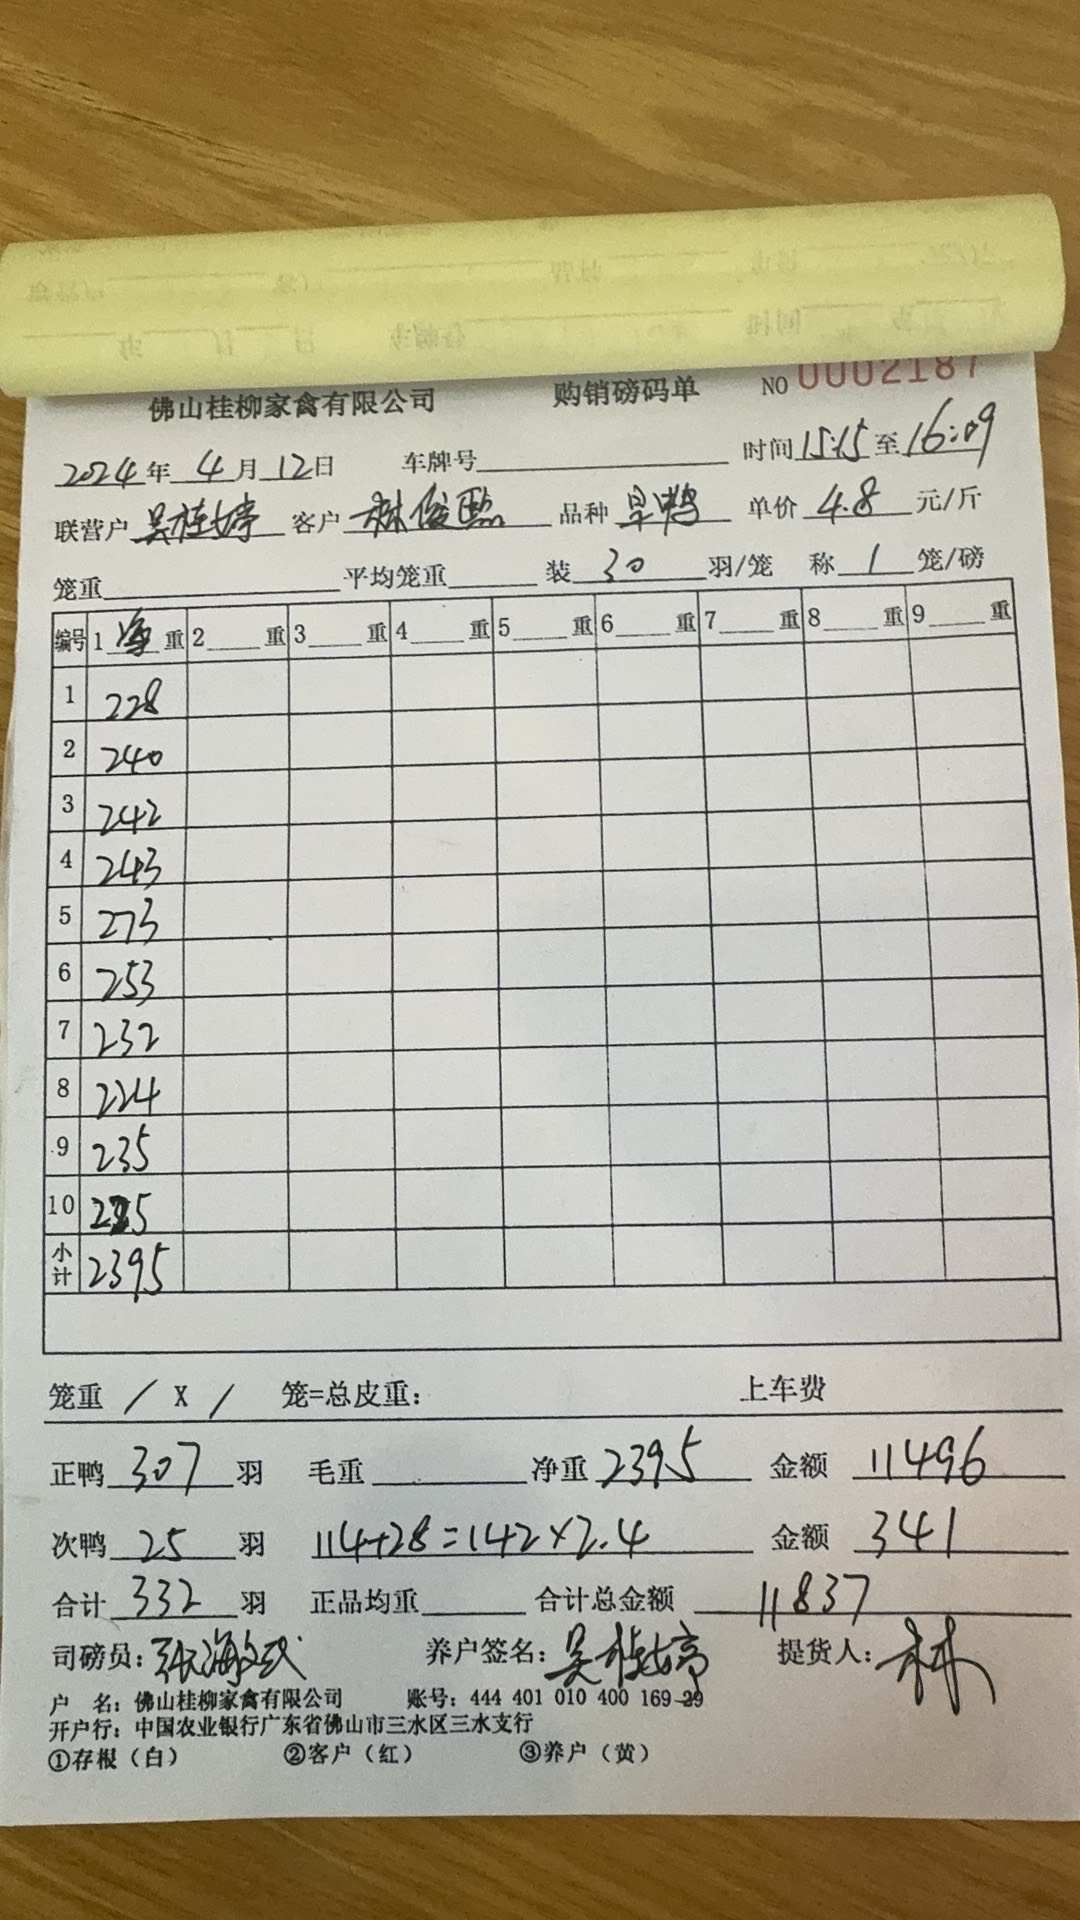 佛山桂柳家禽有限公司 购销磅码单 NO 0002187
2024年 4月12日 车牌号 时间15:15至16:09
联营户 吴桂婷 客户 林俊 品种 旱鸭 单价 4.8 元/斤
笼重 平均笼重 装 30 羽/笼 称 1 笼/磅
编号 1 净 重 2 重 3 重 4 重 5 重 6 重 7 重 8 重 9 重
1 228
2 240
3 242
4 243
5 273
6 253
7 232
8 224
9 235
10 225
小计 2395
笼重 / X / 笼=总皮重: 上车费
正鸭 307 羽 毛重 净重 2395 金额 11496
次鸭 25 羽 114+28=142×2.4 金额 341
合计 332 羽 正品均重 合计总金额 11837
司磅员: 张海 养户签名: 吴桂婷 提货人: 林
户 名: 佛山桂柳家禽有限公司 账号: 444 401 010 400 169 29
开户行: 中国农业银行广东省佛山市三水区三水支行
①存根（白） ②客户（红） ③养户（黄）